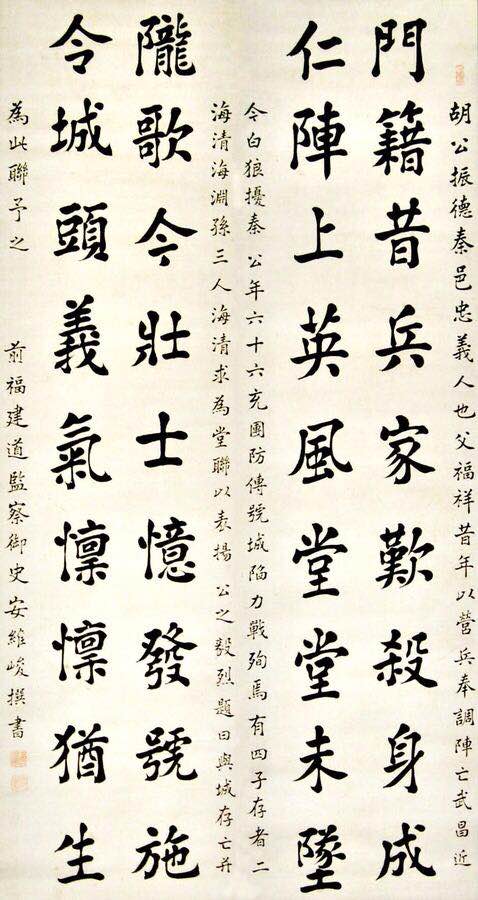 胡公振德秦邑忠義人也父福祥昔年以營兵奉調陣亡武昌近
門籍昔兵家歎殺身成
仁陣上英風堂堂未墜
今白狼擾秦 公年六十六充團防傳號城陷力戰殉焉有四子存者二
海清海淵孫三人海清求為堂聯以表揚 公之毅烈題曰與城存亡并
隴歌今壯士憶發號施
令城頭義氣懍懍猶生
為此聯予之 前福建道監察御史安維峻撰書